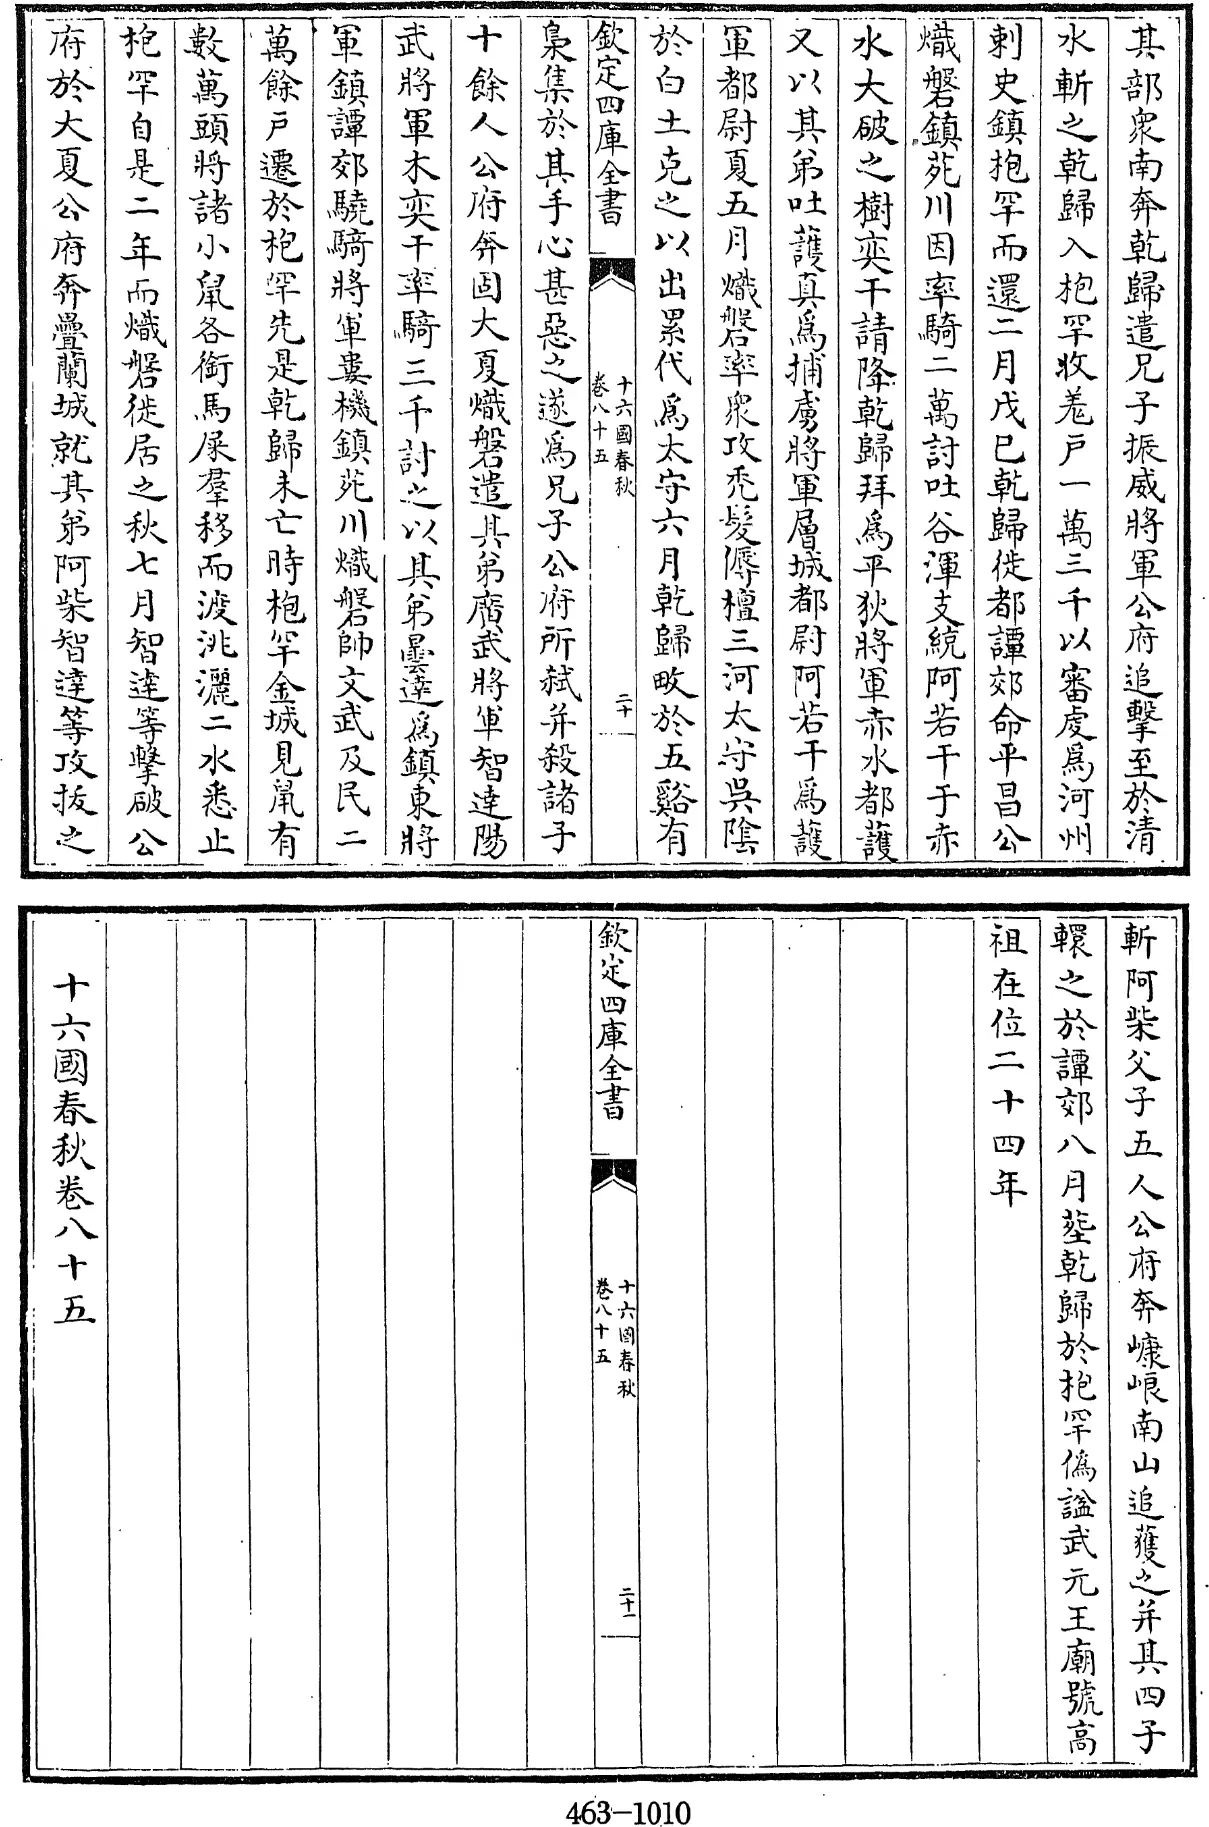 其部衆南奔乾歸遣兄子振威將軍公府追擊至於清
水斬之乾歸入枹罕收羌戸一萬三千以審虔爲河州
刺史鎮抱罕而還二月戊巳乾歸徙都譚郊命平昌公
熾磐鎮苑川因率騎二萬討吐谷渾支統阿若干于赤
水大破之樹奕干請降乾歸拜爲平狄將軍赤水都護
又以其弟吐護真爲捕虜將軍層城都尉阿若干爲護
軍都尉夏五月熾磐率衆攻禿髮傉檀三河太守吳陰
於白土克之以出累代爲太守六月乾歸畋於五谿有
欽定四庫全書
十六國春秋
卷八十五
二十
梟集於其手心甚惡之遂爲兄子公府所弑并殺諸子
十餘人公府奔固大夏熾磐遣其弟廣武將軍智達陽
武將軍木奕干率騎三千討之以其弟曇達爲鎮東將
軍鎮譚郊驍騎將軍婁機鎮苑川熾磐帥文武及民二
萬餘戸遷於枹罕先是乾歸未亡時枹罕金城見鼠有
數萬頭將諸小鼠各銜馬屎羣移而渡洮灑二水悉止
枹罕自是二年而熾磐徙居之秋七月智達等擊破公
府於大夏公府奔疊蘭城就其弟阿柴智達等攻拔之
斬阿柴父子五人公府奔嵻㟍南山追獲之并其四子
轘之於譚郊八月塟乾歸於枹罕僞諡武元王廟號高
祖在位二十四年
欽定四庫全書
十六國春秋
卷八十五
二十一
十六國春秋卷八十五
463-1010